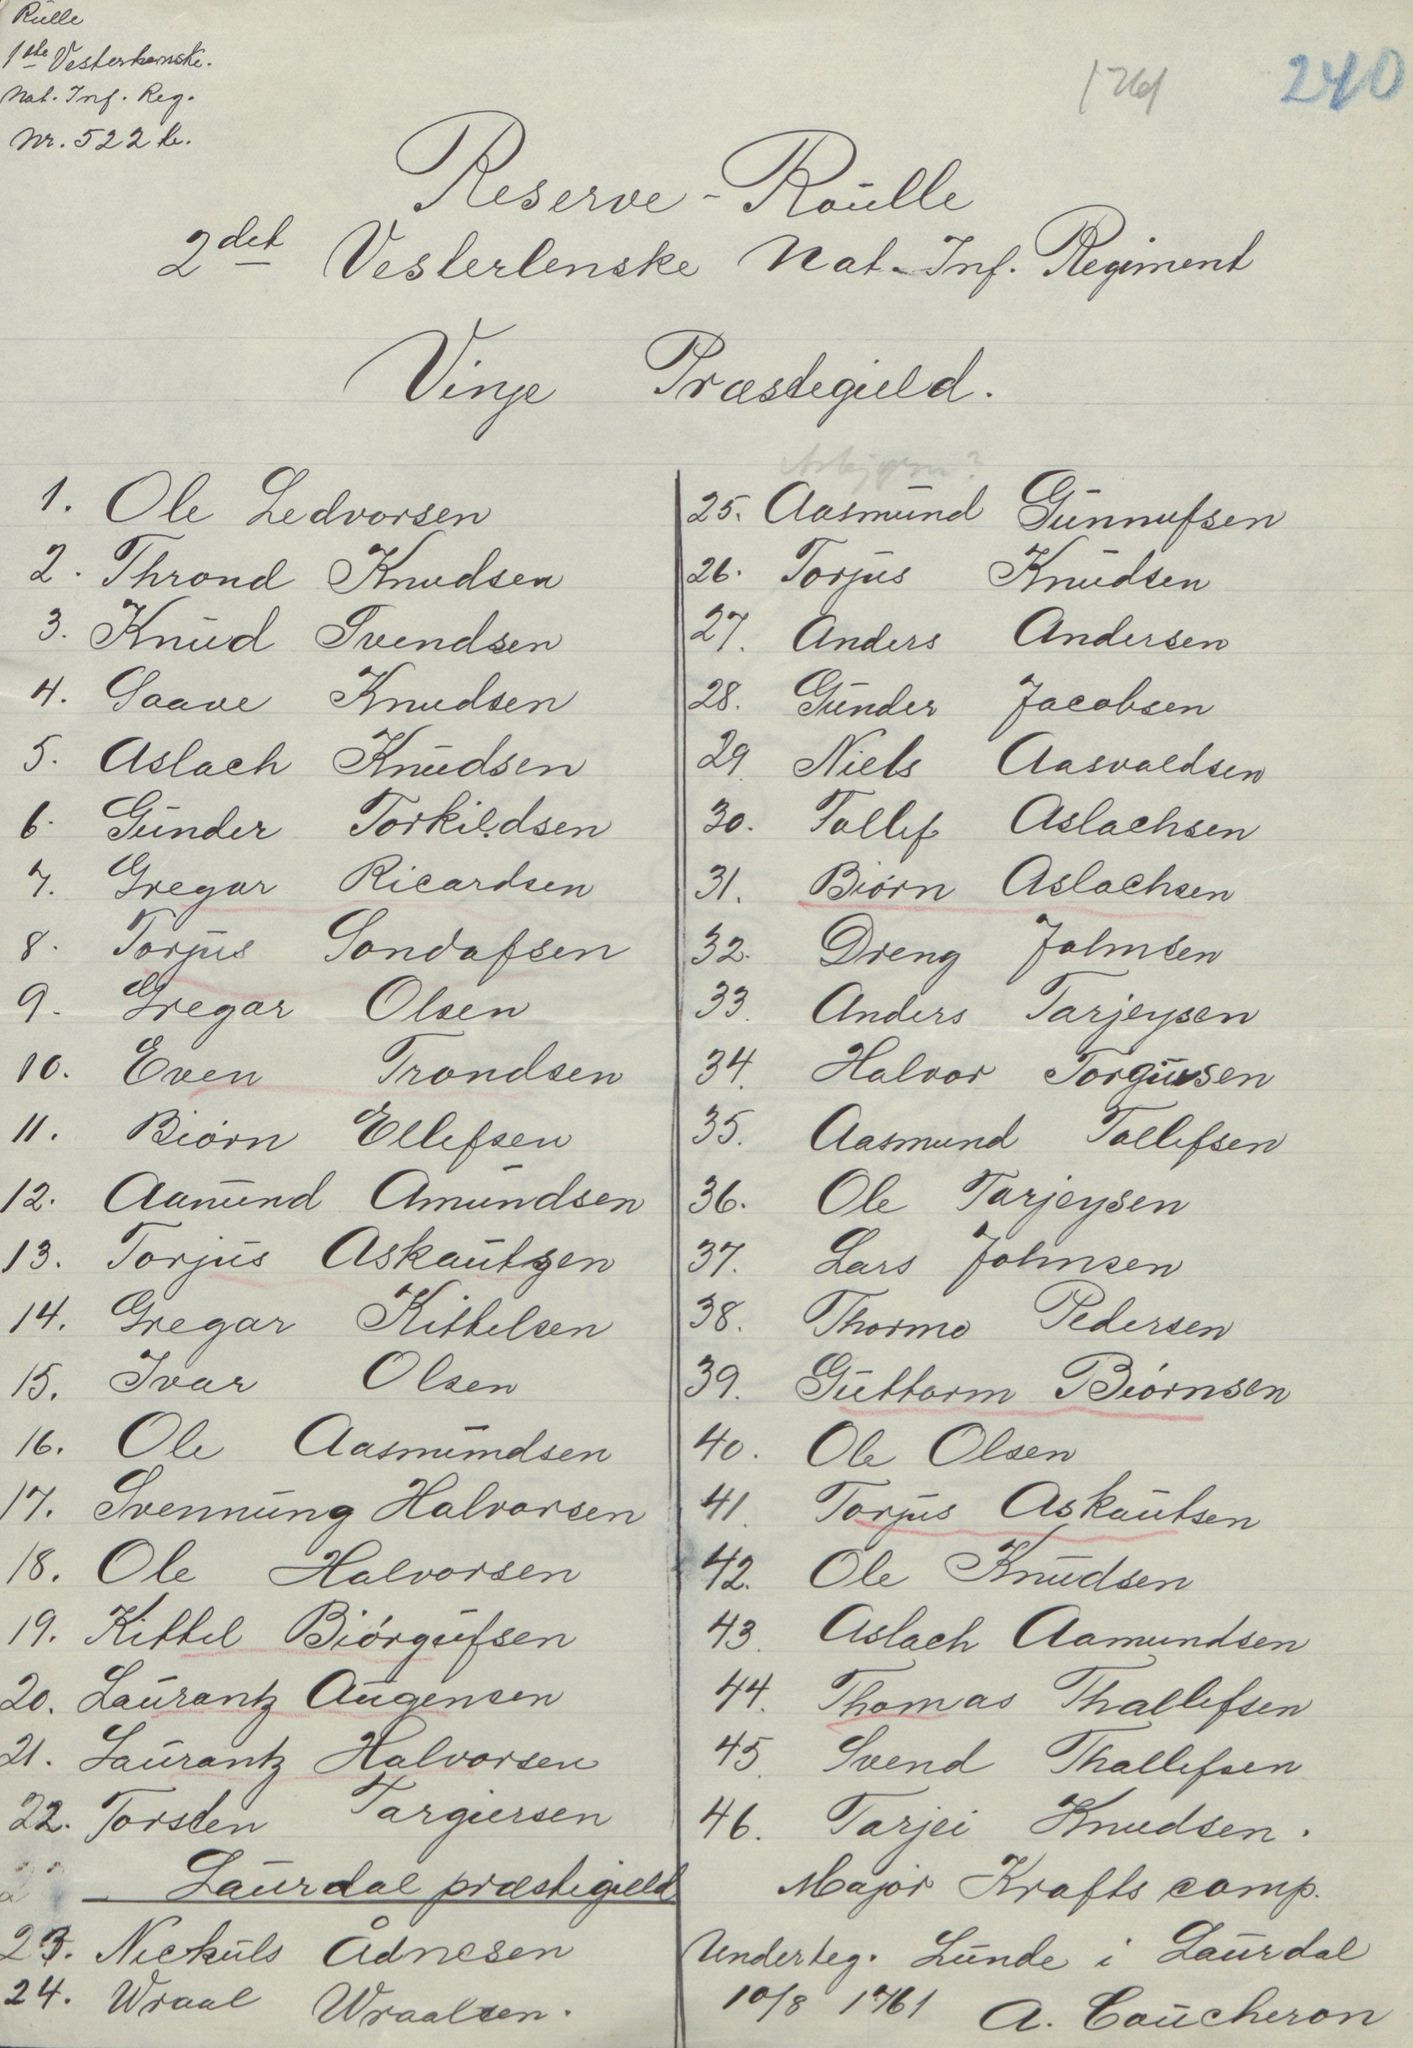 Rulle
1ste Vesterlenske.
Nat. Inf. Reg.
Nr. 522 b.
1761
240
Reserve-Roülle
2det Vesterlenske Nat-Inf. Regiment
Vinje Præstegield.
1. Ole Ledvorsen
2. Thrond Knudsen
3. Knüd Svendsen
4. Saave Knudsen
5. Aslach Knüdsen
6. Günder Torkildsen
7. Gregar Ricardsen
8. Torjüs Sondofsen
9. Gregar Olsen
10. Even Trondsen
11. Biørn Ellefsen
12. Aamünd Amündsen
13. Torjüs Askaütsen
14. Gregar Kittelsen
15. Ivar Olsen
16. Ole Aasmündsen
17. Svennüng Halvorsen
18. Ole Halvorsen
19. Kittel Biørgüfsen
20. Laürantz Aügensen
21. Laürantz Halvorsen
22. Torsten Targiersen
Laürdal præstigield
23. Nicküls Ådnesen
24. Wraal Wraalsen.
25. Aasmünd Günnufsen
26. Torjüs Knüdsen
27. Anders Andersen
28. Günder Jacobsen
29 Niels Aasvaldsen
30. Tollef Aslachsen
31. Biørn Aslachsen
32. Dreng Johnsen
33. Anders Tarjeysen
34. Halvor Torgüvsen
35. Aasmund Tollefsen
36. Ole Tarjeysen
37. Lars Johnsen
38. Thormo Pedersen
39. Güttorm Biørnsen
40. Ole Olsen
41. Torjüs Askaütsen
42. Ole Knüdsen
43. Aslach Aamundsen
44. Thomas Thallefsen
45 Svend Thallefsen
46. Tarjei Knudsen.
Major Krafts comp.
Underteg. Lünde i Laürdal
10/8 1761 A. Coücheron